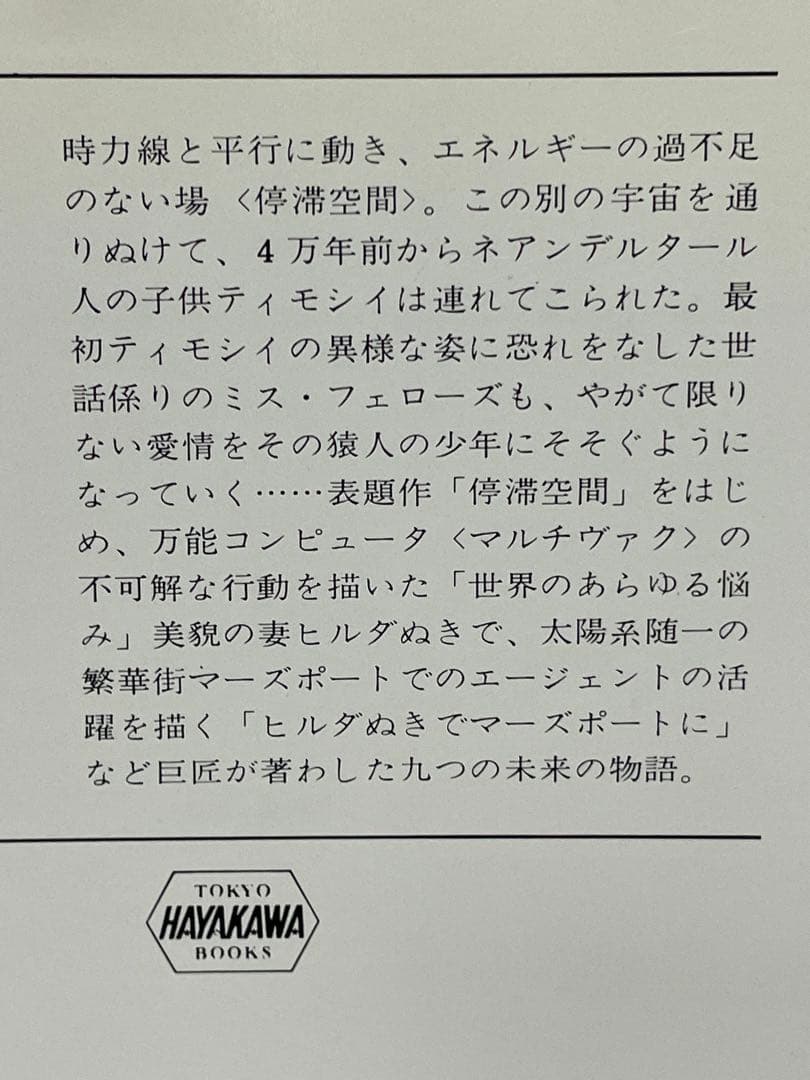 時力線と平行に動き、エネルギーの過不足
のない場〈停滞空間〉。この別の宇宙を通
りぬけて、4万年前からネアンデルタール
人の子供ティモシイは連れてこられた。最
初ティモシイの異様な姿に恐れをなした世
話係りのミス・フェローズも、やがて限り
ない愛情をその猿人の少年にそそぐように
なっていく……表題作「停滞空間」をはじ
め、万能コンピュータ〈マルチヴァク〉の
不可解な行動を描いた「世界のあらゆる悩
み」美貌の妻ヒルダぬきで、太陽系随一の
繁華街マーズポートでのエージェントの活
躍を描く「ヒルダぬきでマーズポートに」
など巨匠が著わした九つの未来の物語。
TOKYO
HAYAKAWA
BOOKS